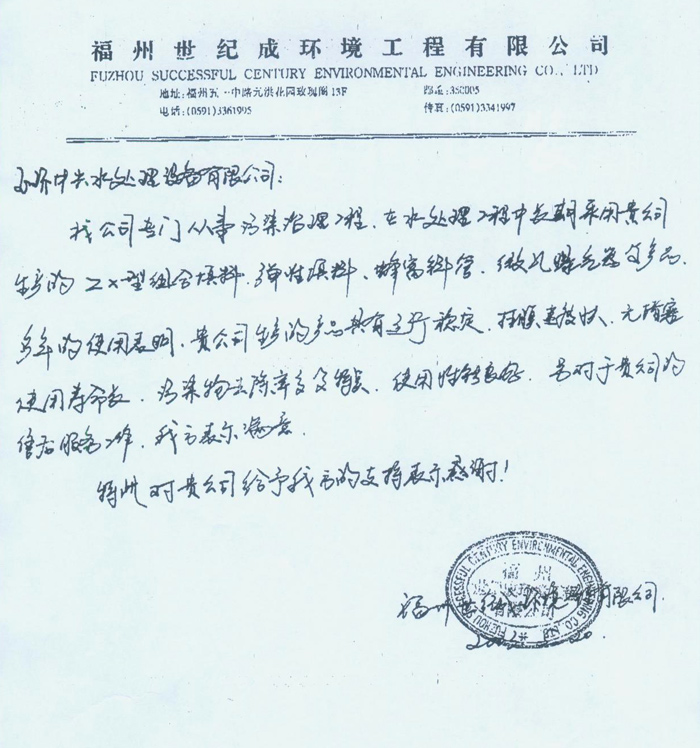 福州世纪成环境工程有限公司
FUZHOU SUCCESSFUL CENTURY ENVIRONMENTAL ENGINEERING CO., LTD
地址:福州五一中路元洪花园玫瑰阁13F 邮编:350005
电话:(0591)3361995 传真:(0591)3341997
水处理设备有限公司:
我公司专门从事污染治理工程,在水处理工程中长期采用贵公司
生产的ZX型组合填料、弹性填料、蜂窝斜管、微孔曝气器等产品.
多年的使用表明,贵公司生产的产品具有运行稳定、挂膜速度快、无堵塞
使用寿命长、污染物去除率高等特点,使用性能良好.另对于贵公司的
售后服务工作,我方表示满意.
特此对贵公司给予我方的支持表示感谢!
福州世纪成环境工程有限公司
FUZHOU SUCCESSFUL CENTURY ENVIRONMENTAL ENGINEERING CO., LTD
福州
有限公司